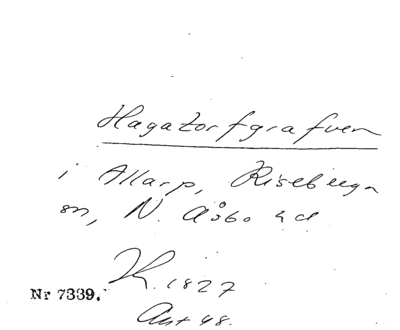 Hagatorfgrafven
i Allarp, Riseberga
sn, N. Åsbo hd
K. 1827
Nr 7339.
Ant 48.